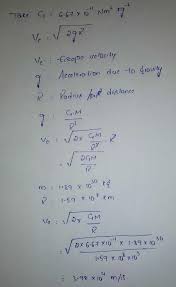 Take: G = 6.67 x 10⁻¹¹ Nm² kg⁻²
Ve = √2gR
Ve = Escape velocity
g = Acceleration due to gravity
R = Radius distance
g = GM/R²
Ve = √2x GM/R² . R
= √2GM/R
m = 1.89 x 10³⁰ kg
R = 1.59 x 10⁵ km
Ve = √2x GM/R
= √2x 6.67 x 10⁻¹¹ x 1.89 x 10³⁰
= 3.98 x 10⁴ m/s